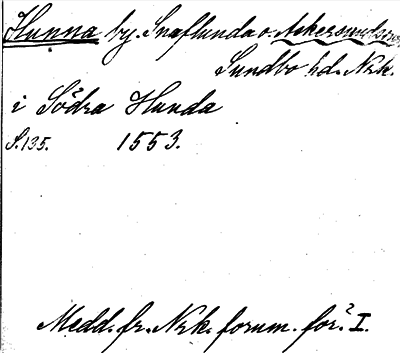 Hunna by. Snaflunda o. Askersunds
Sundbo hd. Nrk.
i Södra Hunda
S. 135. 1553.
Medd. fr. Nrk. fornm. för. I.